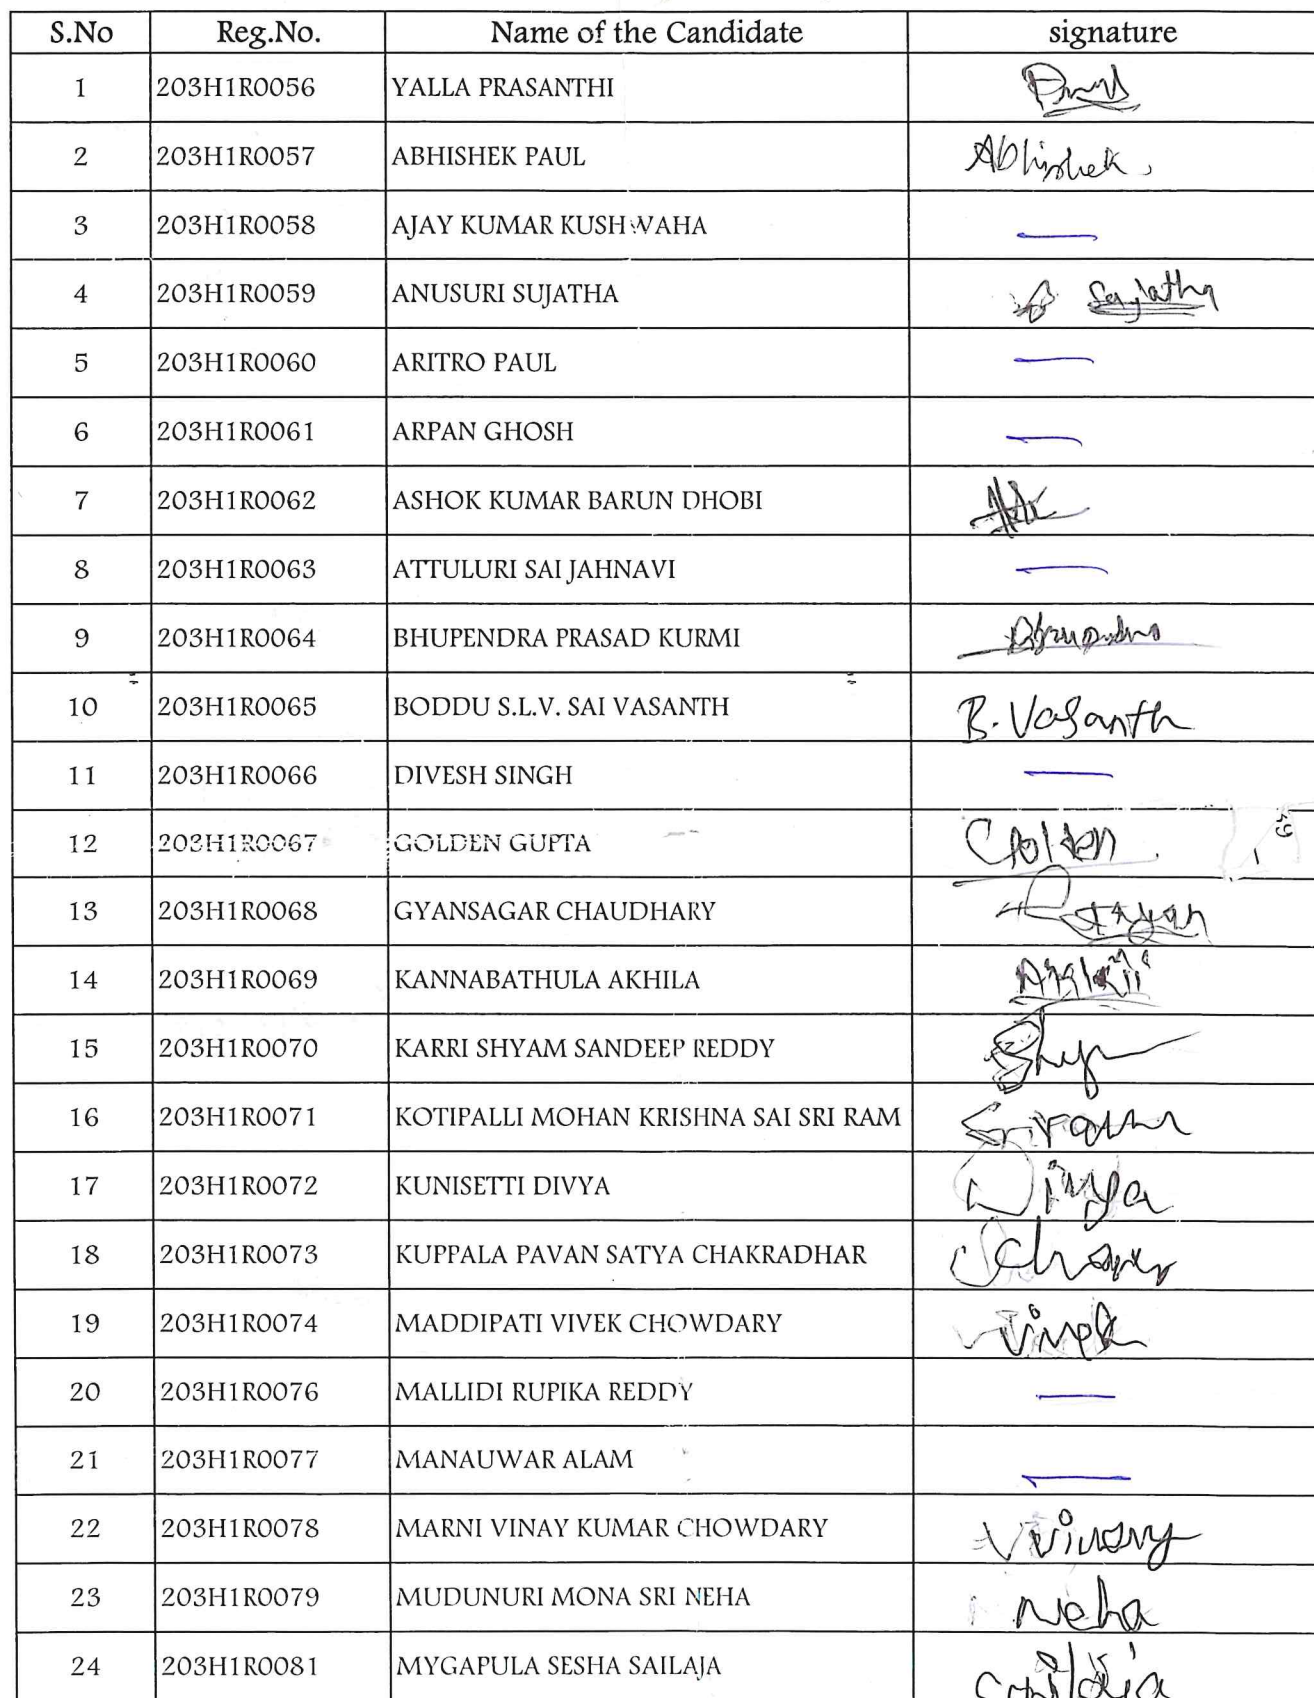 S.No Reg.No. Name of the Candidate signature
1 203H1R0056 YALLA PRASANTHI
2 203H1R0057 ABHISHEK PAUL Abhishek
3 203H1R0058 AJAY KUMAR KUSHWAHA —
4 203H1R0059 ANUSURI SUJATHA Sujatha
5 203H1R0060 ARITRO PAUL —
6 203H1R0061 ARPAN GHOSH —
7 203H1R0062 ASHOK KUMAR BARUN DHOBI
8 203H1R0063 ATTULURI SAI JAHNAVI —
9 203H1R0064 BHUPENDRA PRASAD KURMI
10 203H1R0065 BODDU S.L.V. SAI VASANTH B. Vasanth
11 203H1R0066 DIVESH SINGH —
12 203H1R0067 GOLDEN GUPTA Golden
13 203H1R0068 GYANSAGAR CHAUDHARY
14 203H1R0069 KANNABATHULA AKHILA
15 203H1R0070 KARRI SHYAM SANDEEP REDDY
16 203H1R0071 KOTIPALLI MOHAN KRISHNA SAI SRI RAM Sriram
17 203H1R0072 KUNISETTI DIVYA Divya
18 203H1R0073 KUPPALA PAVAN SATYA CHAKRADHAR
19 203H1R0074 MADDIPATI VIVEK CHOWDARY Vivek
20 203H1R0076 MALLIDI RUPIKA REDDY —
21 203H1R0077 MANAUWAR ALAM —
22 203H1R0078 MARNI VINAY KUMAR CHOWDARY
23 203H1R0079 MUDUNURI MONA SRI NEHA Neha
24 203H1R0081 MYGAPULA SESHA SAILAJA